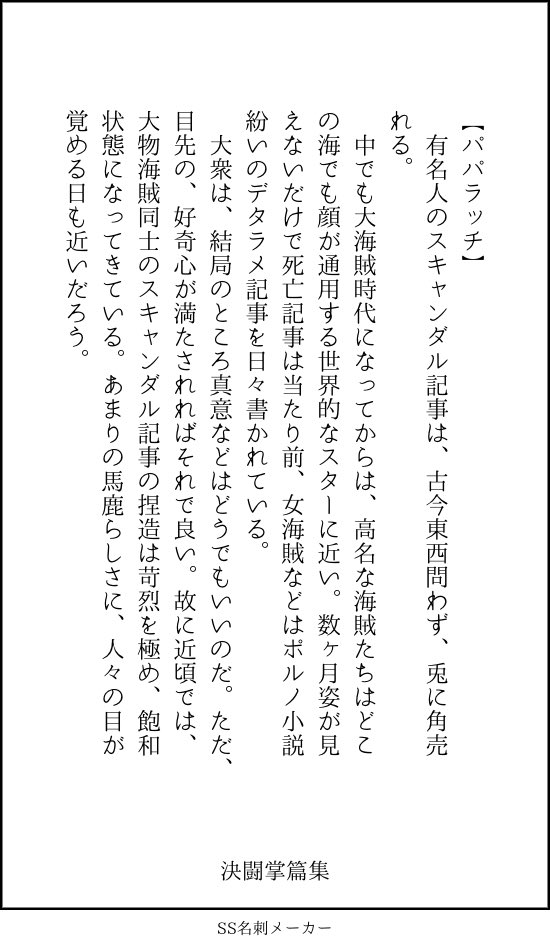 【パパラッチ】
　有名人のスキャンダル記事は、古今東西問わず、兎に角売
れる。
　中でも大海賊時代になってからは、高名な海賊たちはどこ
の海でも顔が通用する世界的なスターに近い。数ヶ月姿が見
えないだけで死亡記事は当たり前、女海賊などはポルノ小説
紛いのデタラメ記事を日々書かれている。
　大衆は、結局のところ真意などはどうでもいいのだ。ただ、
目先の、好奇心が満たされればそれで良い。故に近頃では、
大物海賊同士のスキャンダル記事の捏造は苛烈を極め、飽和
状態になってきている。あまりの馬鹿らしさに、人々の目が
覚める日も近いだろう。
決闘掌篇集
SS名刺メーカー